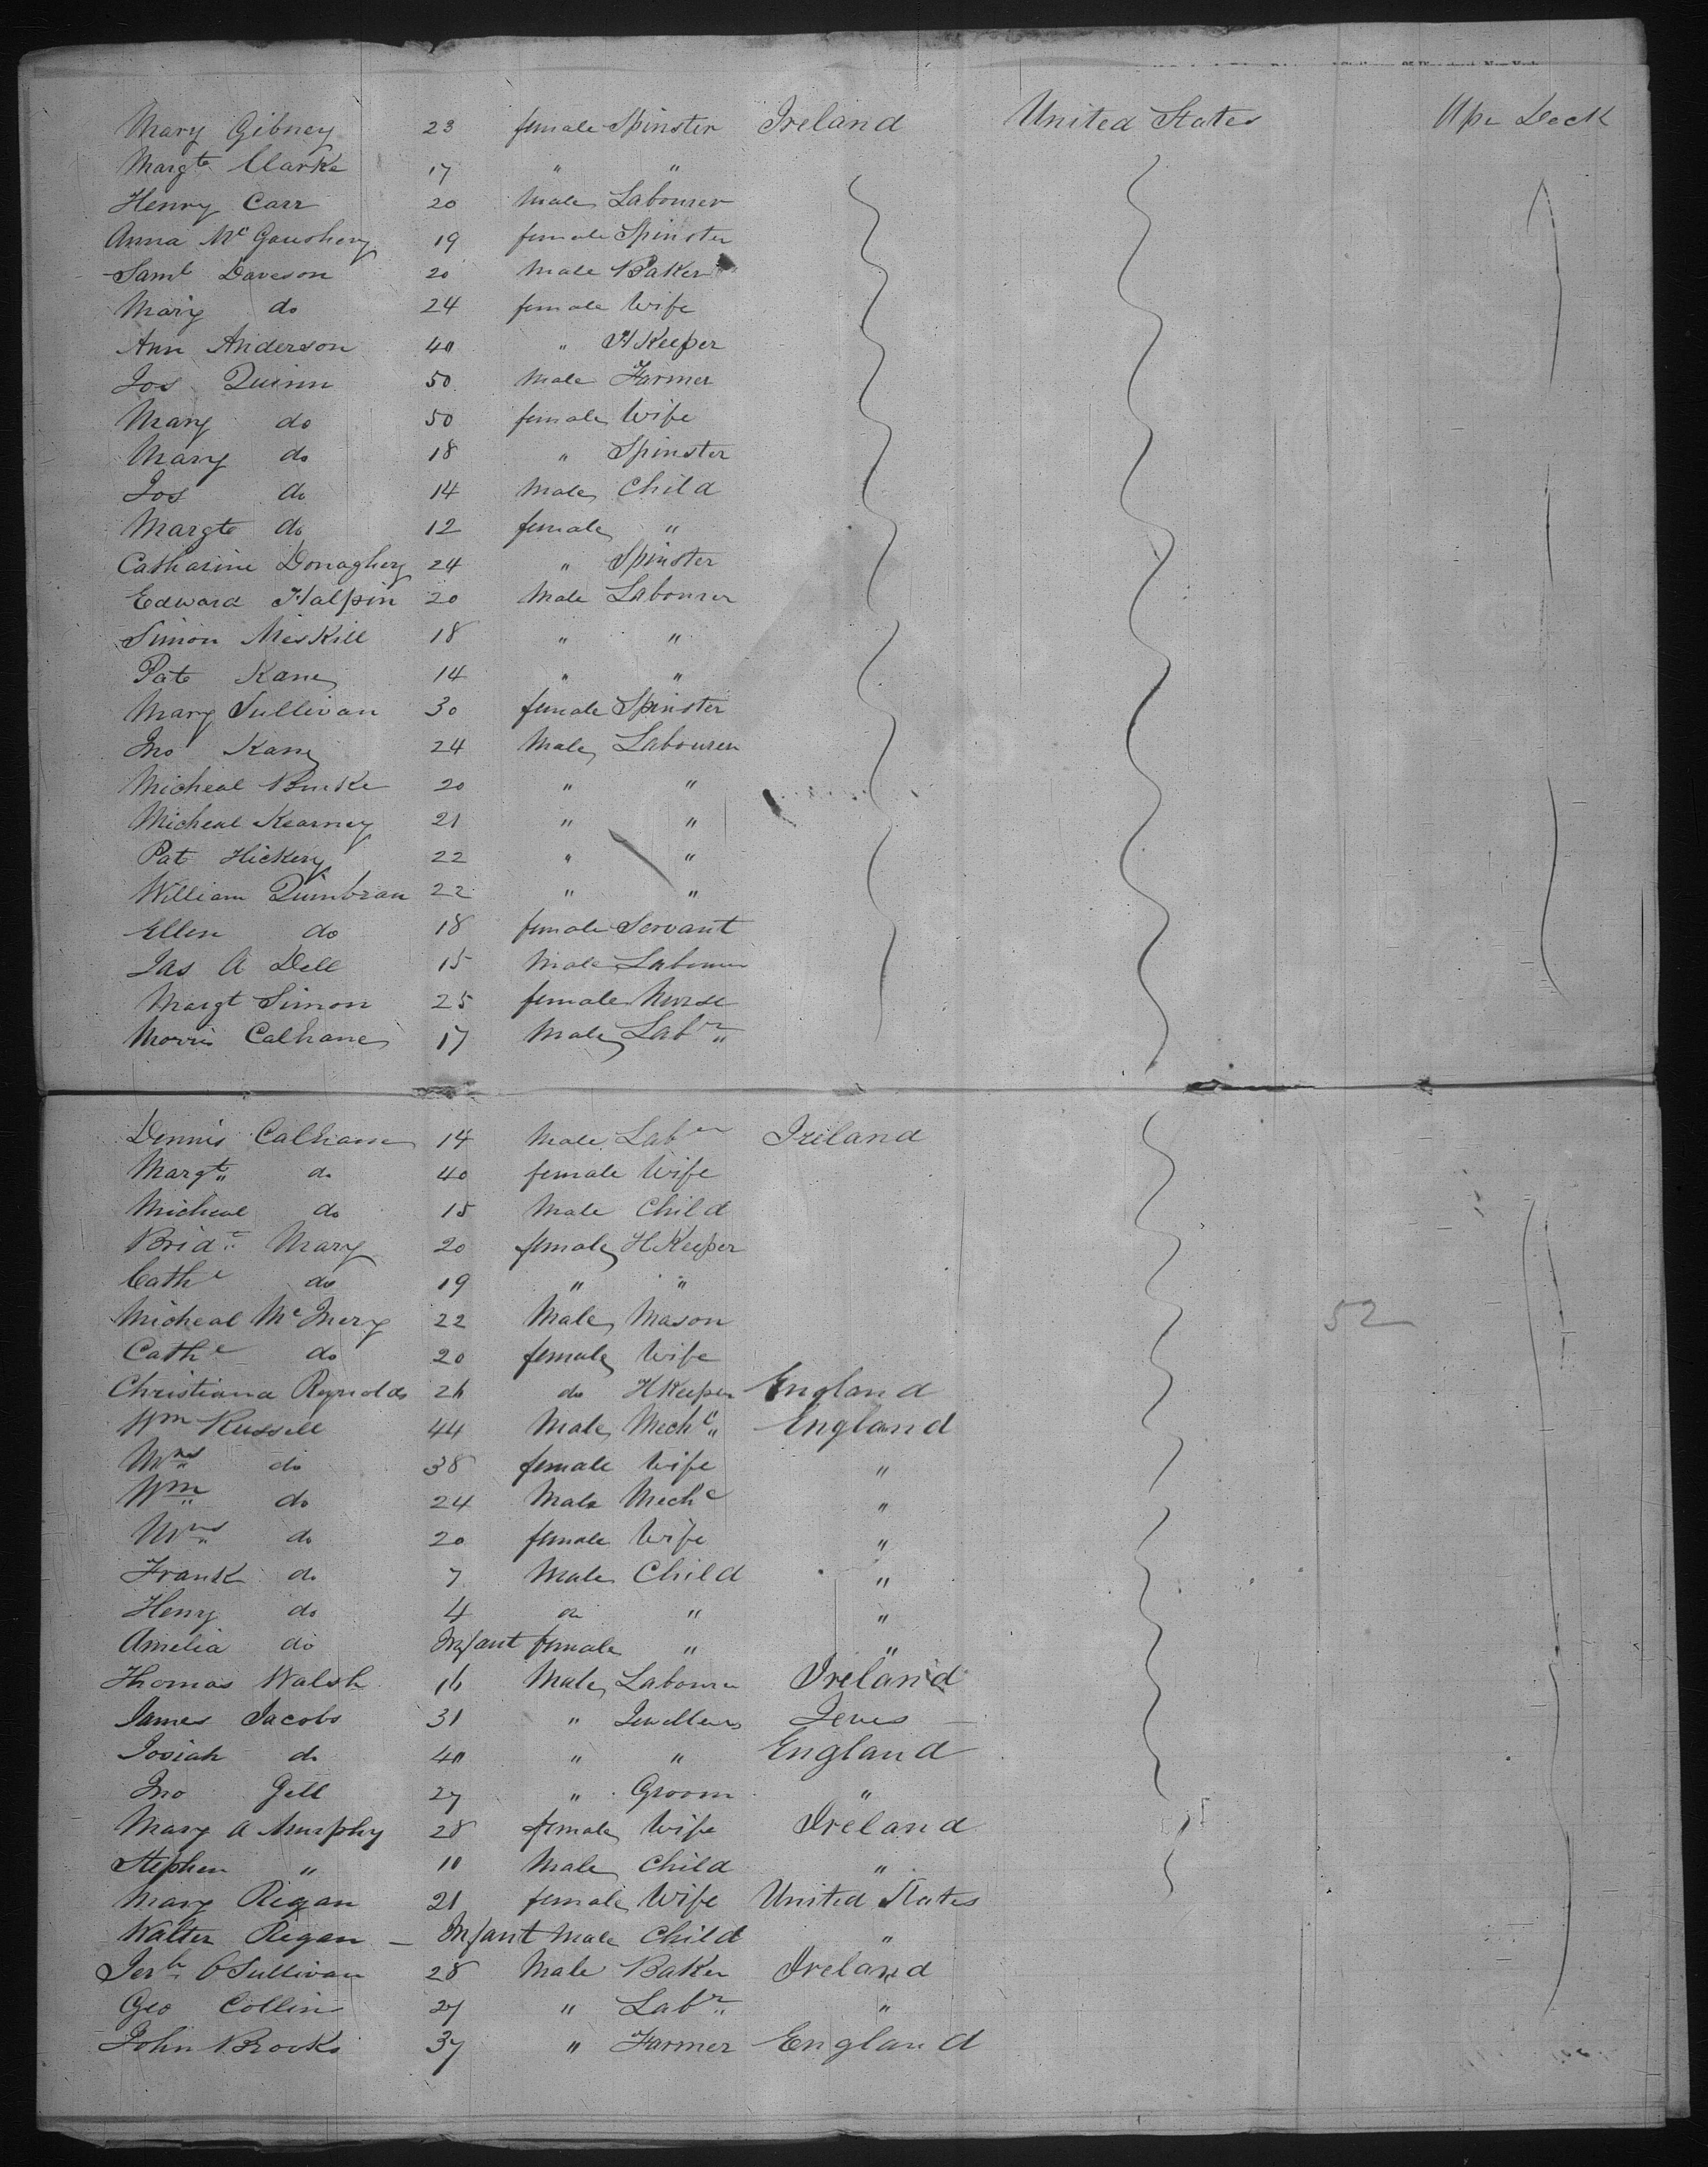 Mary Gibney 23 female Spinster Ireland United States Upr Deck
Margte Clarke 17 " "
Henry Carr 20 Male Labourer
Anna Mc Goushery 19 female Spinster
Saml Daveson 20 Male Baker
Mary do 24 female Wife
Ann Anderson 40 " H Keeper
Jos Quinn 50 Male Farmer
Mary do 50 female Wife
Mary do 18 " Spinster
Jos do 14 Male Child
Margte do 12 female "
Catharine Donaghey 24 " Spinster
Edward Halpin 20 Male Labourer
Simon Meskill 18 " "
Pat Kane 14 " "
Mary Sullivan 30 female Spinster
Jno Kane 24 Male Labourer
Micheal Burke 20 " "
Micheal Kearney 21 " "
Pat Hickey 22 " "
William Quinbran 22 " "
Ellen do 18 female Servant
Jas A Dell 15 Male Labourer
Margt Simon 25 female Nurse
Morris Calhane 17 Male Labr
Dennis Calhane 14 Male Laber Ireland
Margt do 40 female Wife
Micheal do 15 Male Child
Bridt Mary 20 female H Keeper
Cathe do 19 " "
Micheal Mc Inery 22 Male Mason 52
Cathe do 20 female Wife
Christiana Reynolds 26 do H Keeper England
Wm Russell 44 Male Mechc England
Mrs do 38 female Wife "
Wm do 24 Male Mechc "
Mrs do 20 female Wife "
Frank do 7 Male Child "
Henry do 4 do " "
Amelia do Infant female " "
Thomas Walsh 16 Male Labourer Ireland
James Jacobs 31 " Jewellers
Josiah do 40 " " England
Jno Gell 27 " Groom "
Mary A Murphy 28 female Wife Ireland
Stephen " 10 Male Child "
Mary Regan 21 female Wife United States
Walter Regan — Infant Male Child "
Jerh O'Sullivan 28 Male Baker Ireland
Geo Collins 27 " Labr "
John Brooks 37 " Farmer England